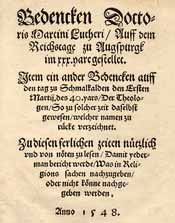 Bedencken Docto-
ris Martini Lutheri / Auff dem
Reichstage zu Augspurgk
im xxx. jare gestellet.
Item ein ander Bedencken auff
den tag zu Schmalkalden den Ersten
Martij, des 40. jars / Der Theolo-
gen / So zu solcher zeit daselbst
gewesen / welcher namen zu
rücke verzeichnet.
Zu diesen ferlichen zeiten nützlich
vnd von nöten zu lesen / Damit yeder-
man bericht werde / Was in Religi-
ons sachen nachzugeben /
oder nicht könne nachge-
geben werden.
Anno 1548.